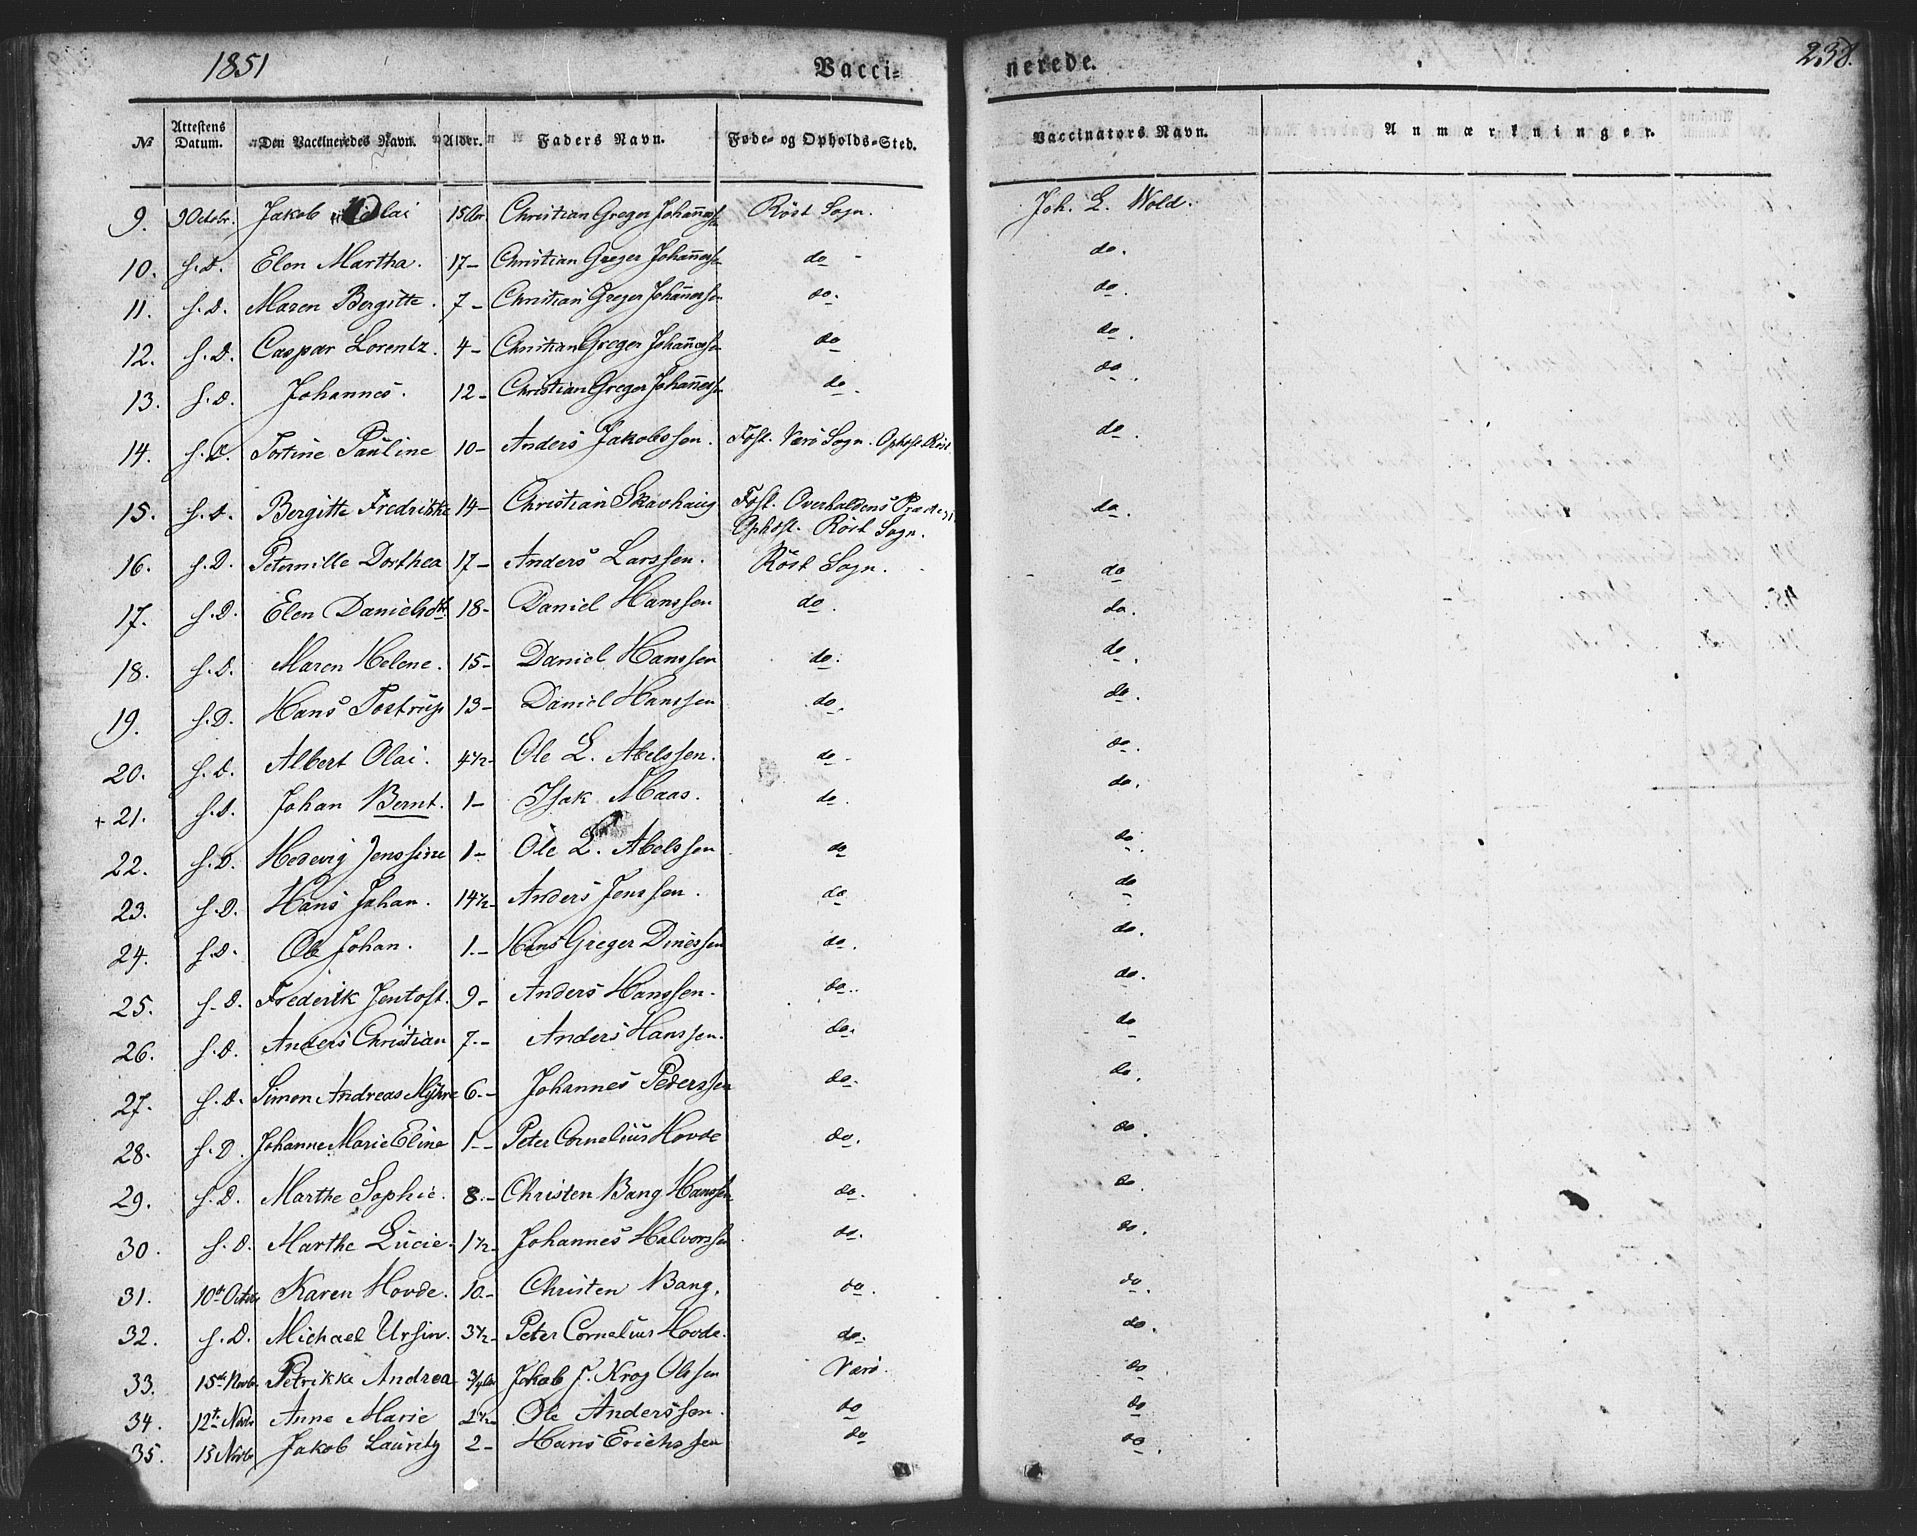 1851 Vacci- nerede. 238.
No Attestens Datum. Den Vaccineredes Navn. Alder. Faders Navn. Føde- og Opholds-Sted. Vaccinators Navn. Anmærkninger.
9. 9 Octobr. Jakob Nicolai 15 Aar Christian Greger Johannessen Röst Sogn. Joh. L. Wold.
10. s. D. Elen Martha. 17 - Christian Greger Johannessen do - do.
11. s. D. Maren Bergitte. 7 - Christian Greger Johannessen do. do.
12. s. D. Caspar Lorentz. 4 - Christian Greger Johannessen do do.
13. s. D. Johannes. 12 - Christian Greger Johannessen do. do.
14. s. D. Tortine Pauline 10 - Anders Jakobssen. Føst. Værö Sogn. Ophst. Röst do.
15. s. D. Bergitte Fredrikke 14 - Christian Skavhaug Føst. Overhaldens Præstegj. do.
Ophst. Röst Sogn.
16. s. D. Peternille Dorthea 17 - Anders Larssen. Röst Sogn. do
17. s. D. Elen Danielsdtr 18 - Daniel Hanssen do. do.
18. s. D. Maren Helene. 15 - Daniel Hanssen do. do.
19. s. D. Hans Tostrup 13 - Daniel Hanssen do. do.
20. s. D. Albert Olai. 4 1/2 - Ole L. Abelssen. do - do.
+ 21. s. D. Johan Bernt. 1 - Isak Maas. do. do.
22. s. D. Hedevig Jenssine 1 - Ole L. Abelssen do do.
23. s. D. Hans Johan. 14 1/2 - Anders Jenssen. do do
24. s. D. Ole Johan. 1. - Hans Greger Dinessen do. do.
25. s. D. Frederik Jentoft. 9 - Anders Hanssen. do. do.
26. s. D. Anders Christian 7. - Anders Hanssen. do. do
27. s. D. Simon Andreas Myhre 6. - Johannes Pederssen do. do.
28. s. D. Johanne Marie Eline 1 - - Peter Cornelius Hovde do. do.
29. s. D. Marthe Sophie. 8. - Christen Bang Hanssen do. do.
30. s. D. Marthe Lucie. 1 1/2 - Johannes Halvorssen do. do.
31. 10de Octbr Karen Hovde. 10. - Christen Bang. do. do.
32. s. D. Michael Ursin. 3 1/2 - Peter Cornelius Hovde. do. do.
33. 15de Novbr. Petrikke Andrea 3/4 Aar Jakob F. Krog Olssen Værö. do
34. 12te Novbr Anne Marie 2 1/2 - Ole Anderssen. do do
35. 15 Novbr Jakob Lauritz 2 - Hans Erichssen do do.